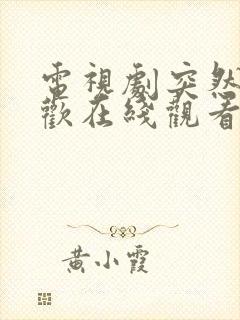 電視劇突然
歡在綫觀看
黃小霞